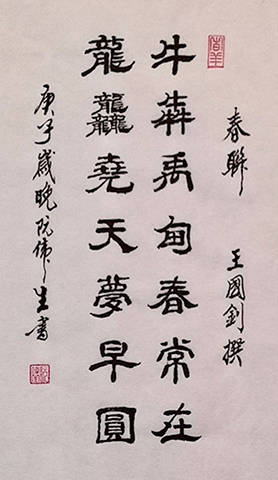 春聯 王國釗撰
牛犇禹甸春常在
龍龘堯天夢早圓
庚子歲晚阮偉生書